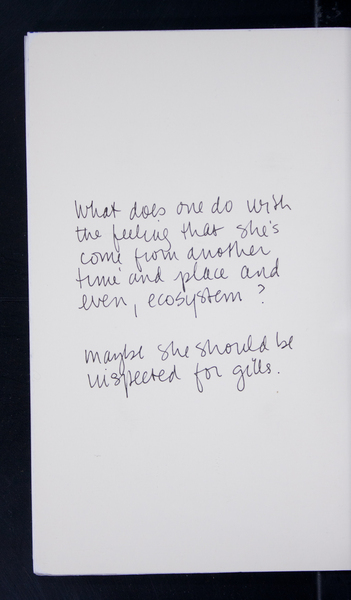 What does one do with
the feeling that she's
come from another
time and place and
even, ecosystem?
maybe she should be
inspected for gills.